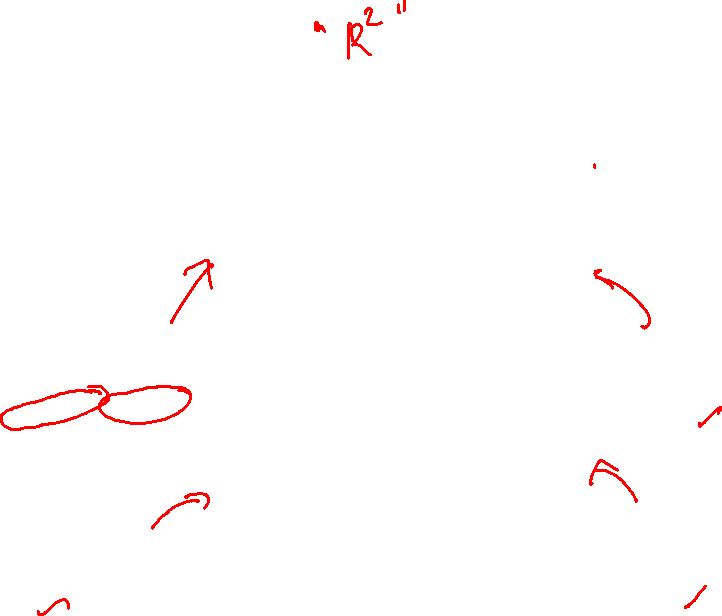 "R²"